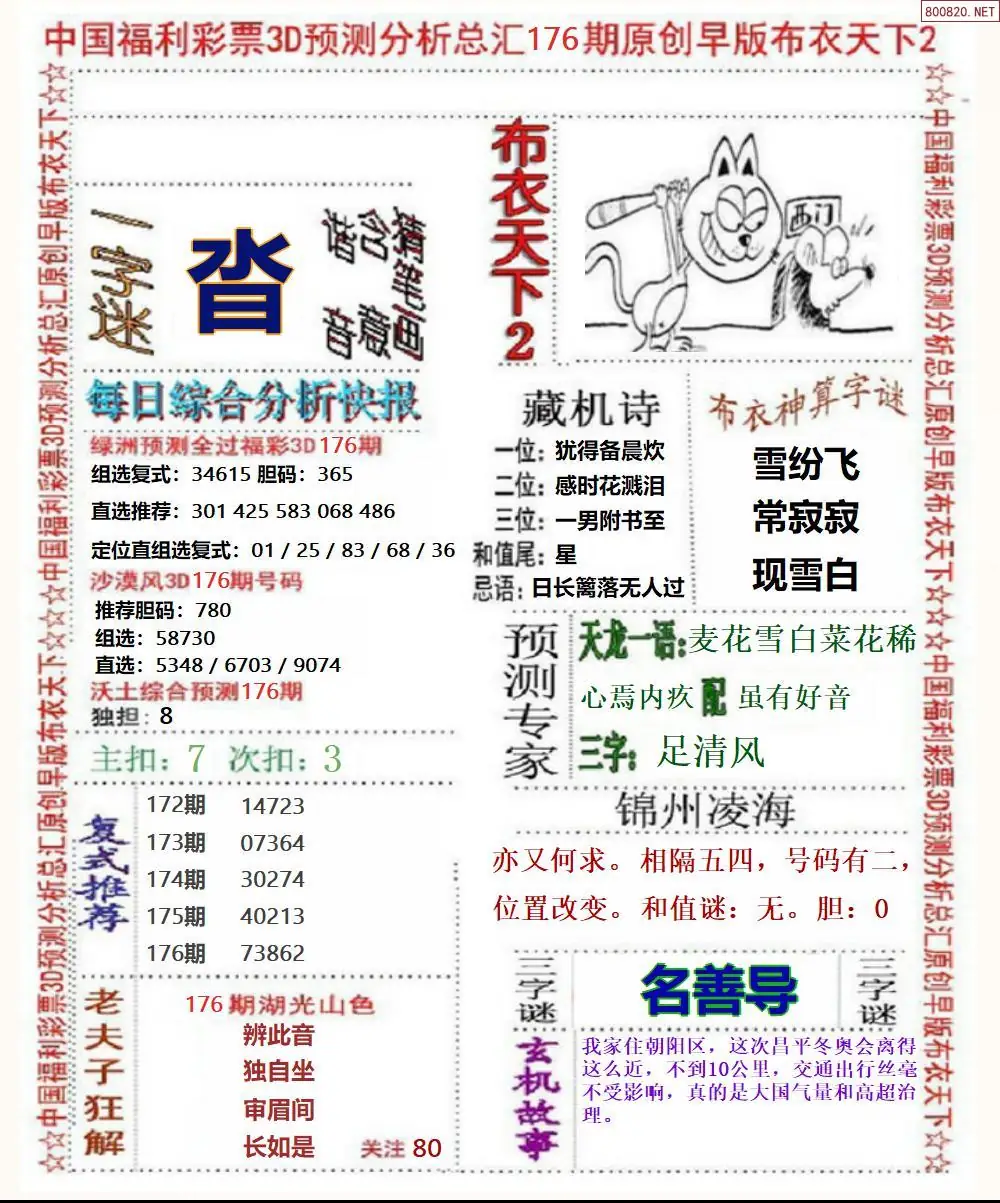 800820.NET
中国福利彩票3D预测分析总汇176期原创早版布衣天下2
☆☆中国福利彩票3D预测分析总汇原创早版布衣天下☆☆☆☆中国福利彩票3D预测分析总汇原创早版布衣天下☆☆
一字迷
沓
猜笔画
含意
谐音
布衣天下2
西门
每日综合分析快报
绿洲预测全过福彩3D176期
组选复式：34615 胆码：365
直选推荐：301 425 583 068 486
定位直组选复式：01 / 25 / 83 / 68 / 36
沙漠风3D176期号码
推荐胆码：780
组选：58730
直选：5348 / 6703 / 9074
沃土综合预测176期
独担：8
主扣：7 次扣：3
复式推荐
172期 14723
173期 07364
174期 30274
175期 40213
176期 73862
老夫子狂解
176期湖光山色
辨此音
独自坐
审眉间
长如是
关注 80
藏机诗
一位：犹得备晨炊
二位：感时花溅泪
三位：一男附书至
和值尾：星
忌语：日长篱落无人过
布衣神算字谜
雪纷飞
常寂寂
现雪白
预测专家
天龙一语:麦花雪白菜花稀
心焉内疚 配 虽有好音
三字：足清风
锦州凌海
亦又何求。相隔五四，号码有二，
位置改变。和值谜：无。胆：0
三字谜
名善导
三字谜
玄机故事
我家住朝阳区，这次昌平冬奥会离得
这么近，不到10公里，交通出行丝毫
不受影响，真的是大国气量和高超治
理。
☆☆中国福利彩票3D预测分析总汇原创早版布衣天下☆☆☆☆中国福利彩票3D预测分析总汇原创早版布衣天下☆☆